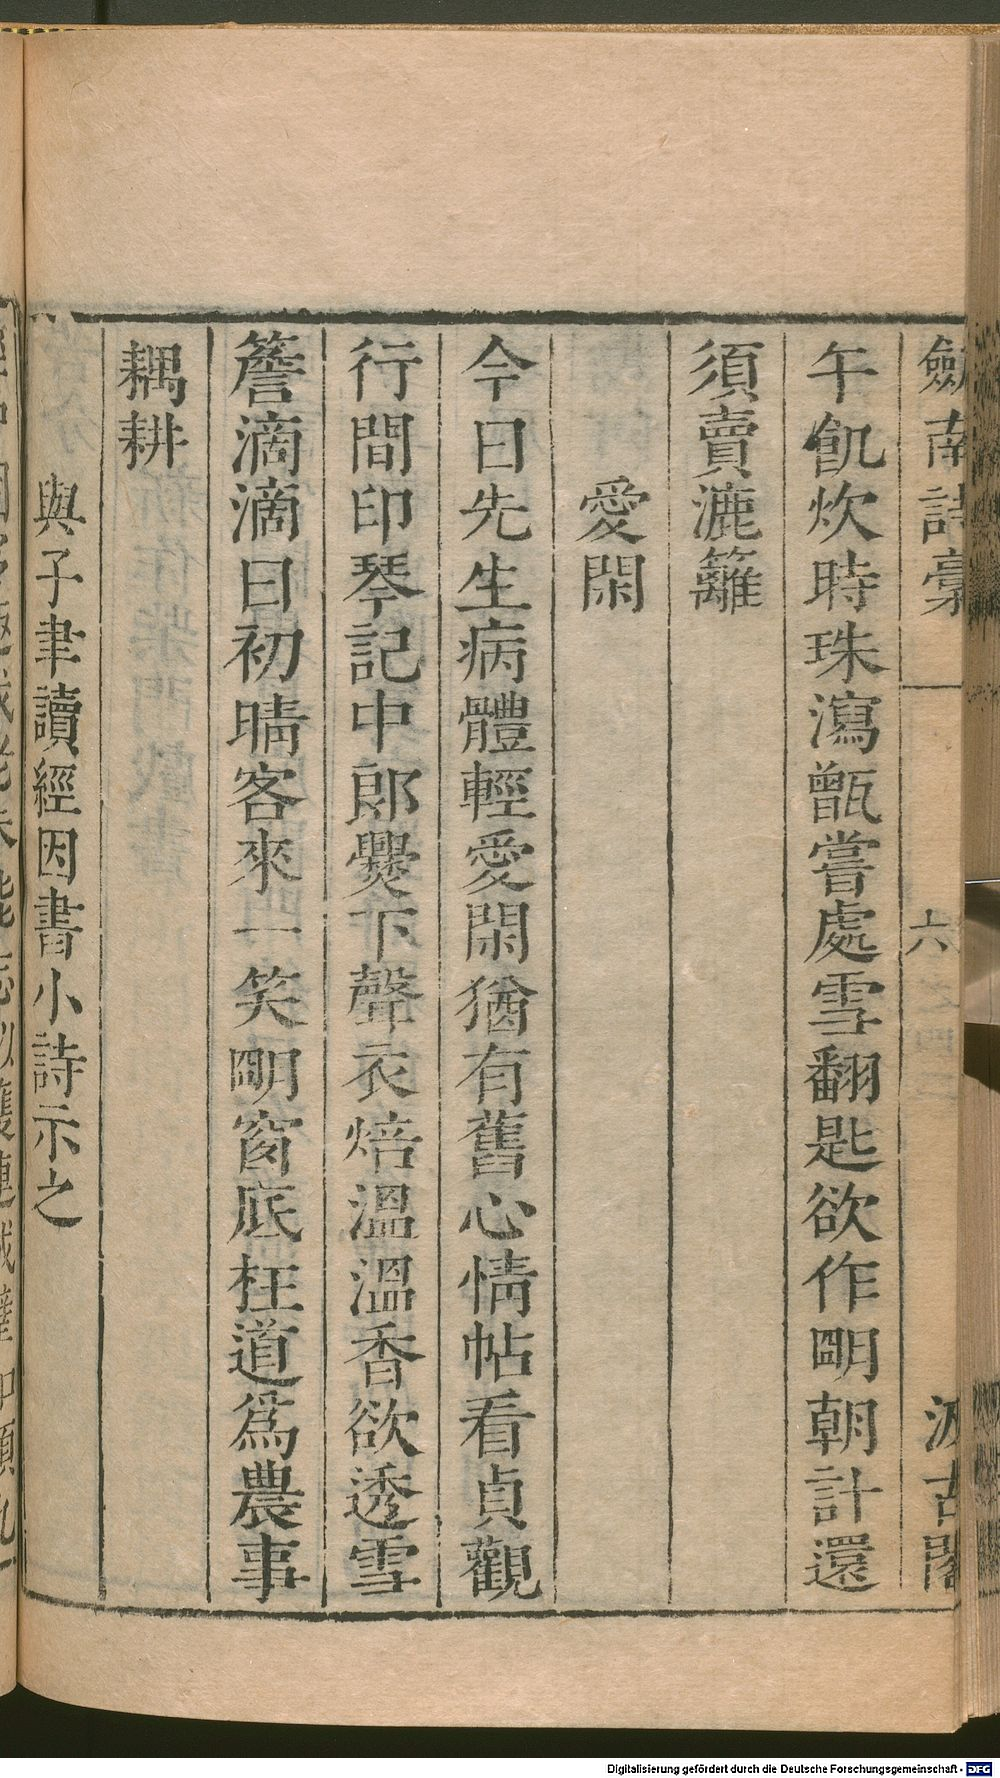 劔南詩稾 六 汲古閣
午飢炊時珠瀉甑嘗處雪翻匙欲作朙朝計還
須賣漉籬
愛閑
今日先生病體輕愛閑猶有舊心情帖看貞觀
行間印琴記中郞爨下聲衣焙溫溫香欲透雪
簷滴滴日初晴客來一笑朙窗底枉道爲農事
耦耕
與子聿讀經因書小詩示之
Digitalisierung gefördert durch die Deutsche Forschungsgemeinschaft - DFG